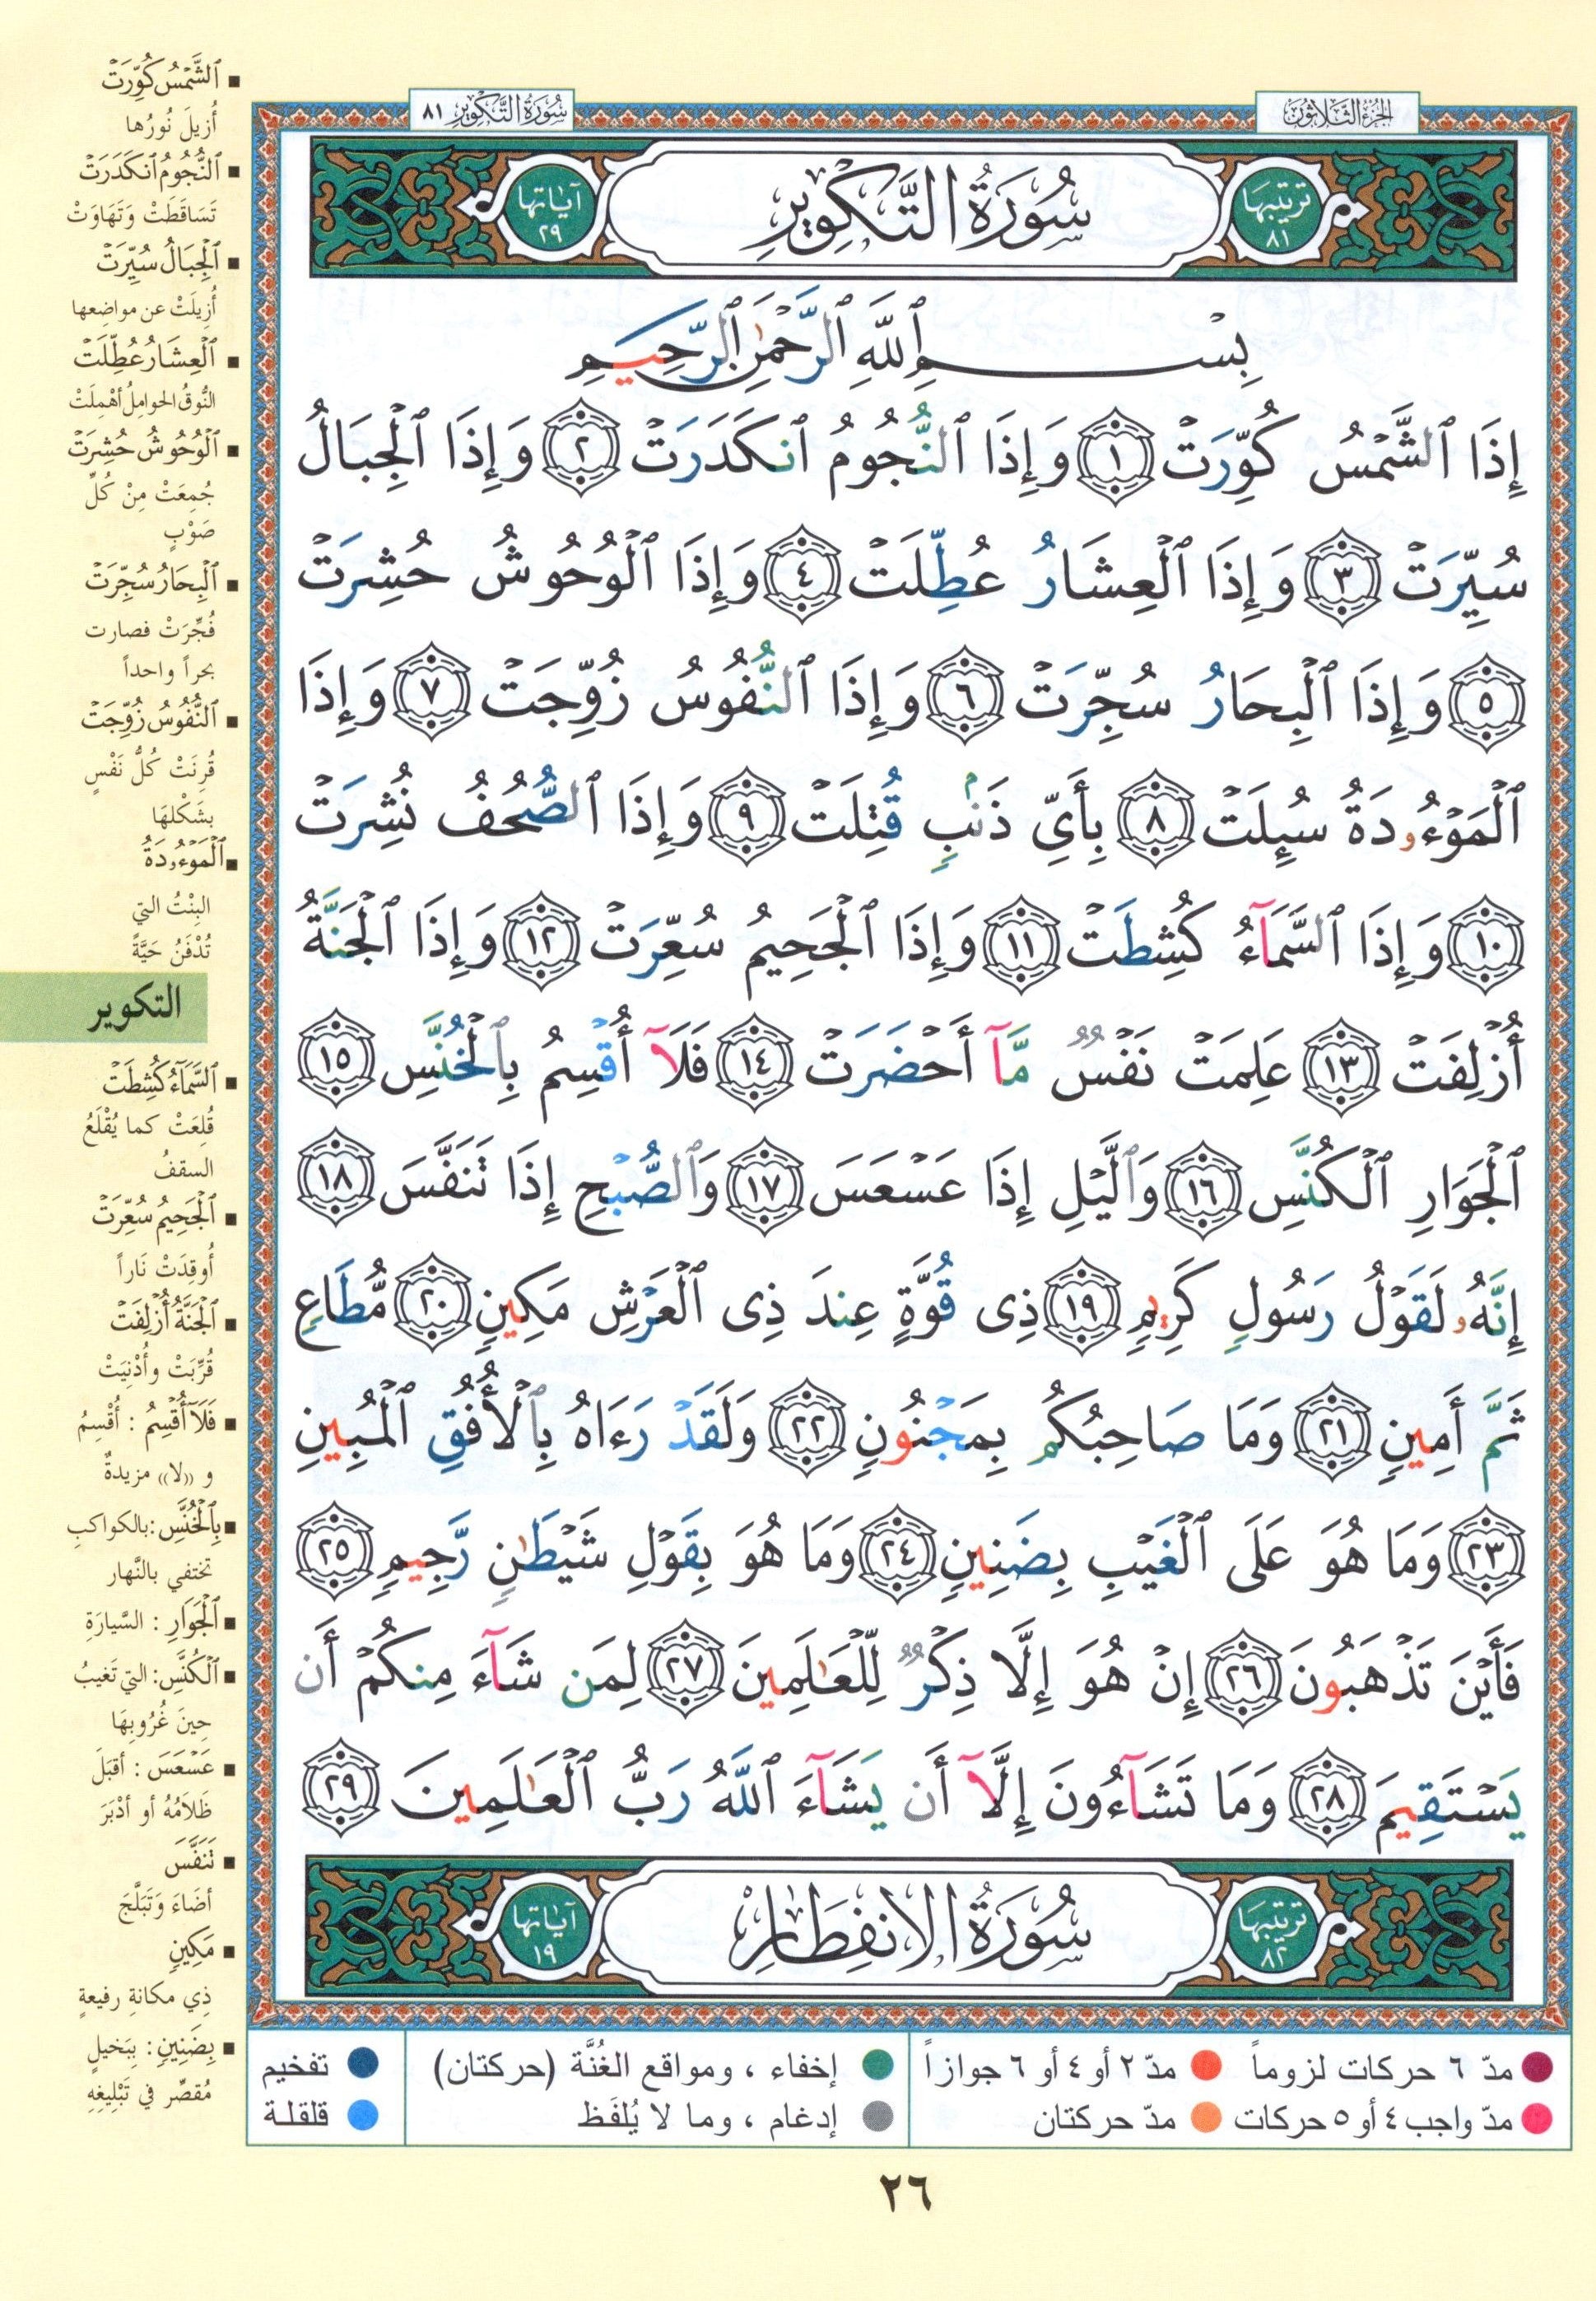 الجزء الثلاثون
سورة التكوير ٨١
ترتيبها ٨١
سُورَةُ التَّكْوِيرِ
آياتها ٢٩
بِسْمِ ٱللَّهِ ٱلرَّحْمَٰنِ ٱلرَّحِيمِ
إِذَا ٱلشَّمْسُ كُوِّرَتْ ١ وَإِذَا ٱلنُّجُومُ ٱنكَدَرَتْ ٢ وَإِذَا ٱلْجِبَالُ
سُيِّرَتْ ٣ وَإِذَا ٱلْعِشَارُ عُطِّلَتْ ٤ وَإِذَا ٱلْوُحُوشُ حُشِرَتْ
٥ وَإِذَا ٱلْبِحَارُ سُجِّرَتْ ٦ وَإِذَا ٱلنُّفُوسُ زُوِّجَتْ ٧ وَإِذَا
ٱلْمَوْءُۥدَةُ سُئِلَتْ ٨ بِأَىِّ ذَنۢبٍ قُتِلَتْ ٩ وَإِذَا ٱلصُّحُفُ نُشِرَتْ
١٠ وَإِذَا ٱلسَّمَآءُ كُشِطَتْ ١١ وَإِذَا ٱلْجَحِيمُ سُعِّرَتْ ١٢ وَإِذَا ٱلْجَنَّةُ
أُزْلِفَتْ ١٣ عَلِمَتْ نَفْسٌ مَّآ أَحْضَرَتْ ١٤ فَلَآ أُقْسِمُ بِٱلْخُنَّسِ ١٥
ٱلْجَوَارِ ٱلْكُنَّسِ ١٦ وَٱلَّيْلِ إِذَا عَسْعَسَ ١٧ وَٱلصُّبْحِ إِذَا تَنَفَّسَ ١٨
إِنَّهُۥ لَقَوْلُ رَسُولٍ كَرِيمٍ ١٩ ذِى قُوَّةٍ عِندَ ذِى ٱلْعَرْشِ مَكِينٍ ٢٠ مُّطَاعٍ
ثَمَّ أَمِينٍ ٢١ وَمَا صَاحِبُكُم بِمَجْنُونٍ ٢٢ وَلَقَدْ رَءَاهُ بِٱلْأُفُقِ ٱلْمُبِينِ
٢٣ وَمَا هُوَ عَلَى ٱلْغَيْبِ بِضَنِينٍ ٢٤ وَمَا هُوَ بِقَوْلِ شَيْطَٰنٍ رَّجِيمٍ ٢٥
فَأَيْنَ تَذْهَبُونَ ٢٦ إِنْ هُوَ إِلَّا ذِكْرٌ لِّلْعَٰلَمِينَ ٢٧ لِمَن شَآءَ مِنكُمْ أَن
يَسْتَقِيمَ ٢٨ وَمَا تَشَآءُونَ إِلَّآ أَن يَشَآءَ ٱللَّهُ رَبُّ ٱلْعَٰلَمِينَ ٢٩
ترتيبها ٨٢
سُورَةُ الانفِطَارِ
آياتها ١٩
ٱلشَّمْسُ كُوِّرَتْ
أُزيلَ نُورُها
ٱلنُّجُومُ ٱنكَدَرَتْ
تَسَاقَطَتْ وَتَهَاوَتْ
ٱلْجِبَالُ سُيِّرَتْ
أُزِيلَتْ عن مواضِعها
ٱلْعِشَارُ عُطِّلَتْ
النُّوقُ الحوامِلُ أُهْمِلَتْ
ٱلْوُحُوشُ حُشِرَتْ
جُمِعَتْ مِنْ كُلِّ
صَوْبٍ
ٱلْبِحَارُ سُجِّرَتْ
فُجِّرَتْ فصارت
بحراً واحداً
ٱلنُّفُوسُ زُوِّجَتْ
قُرِنَتْ كُلُّ نَفْسٍ
بِشَكْلِهَا
ٱلْمَوْءُۥدَةُ
البِنْتُ التي
تُدْفَنُ حَيَّةً
التكوير
ٱلسَّمَآءُ كُشِطَتْ
قُلِعَتْ كما يُقْلَعُ
السقفُ
ٱلْجَحِيمُ سُعِّرَتْ
أُوقِدَتْ نَاراً
ٱلْجَنَّةُ أُزْلِفَتْ
قُرِّبَتْ وأُدْنِيَتْ
فَلَآ أُقْسِمُ : أُقْسِمُ
و «لا» مزيدةٌ
بِٱلْخُنَّسِ : بالكواكبِ
تختفي بالنَّهار
ٱلْجَوَارِ : السَّيارَةِ
ٱلْكُنَّسِ : التي تَغيبُ
حِينَ غُرُوبِهَا
عَسْعَسَ : أقبَلَ
ظَلَامُهُ أو أدْبَرَ
تَنَفَّسَ
أضَاءَ وَتَبَلَّجَ
مَكِينٍ
ذِي مكانةِ رفيعةٍ
بِضَنِينٍ : بِبَخيلٍ
مُقصِّر في تَبْلِيغِهِ
مدّ ٦ حركات لزوماً
مدّ ٢ أو ٤ أو ٦ جوازاً
إخفاء ، ومواقع الغُنَّة (حركتان)
تفخيم
مدّ واجب ٤ أو ٥ حركات
مدّ حركتان
إدغام ، وما لا يُلفَظ
قلقلة
٢٦